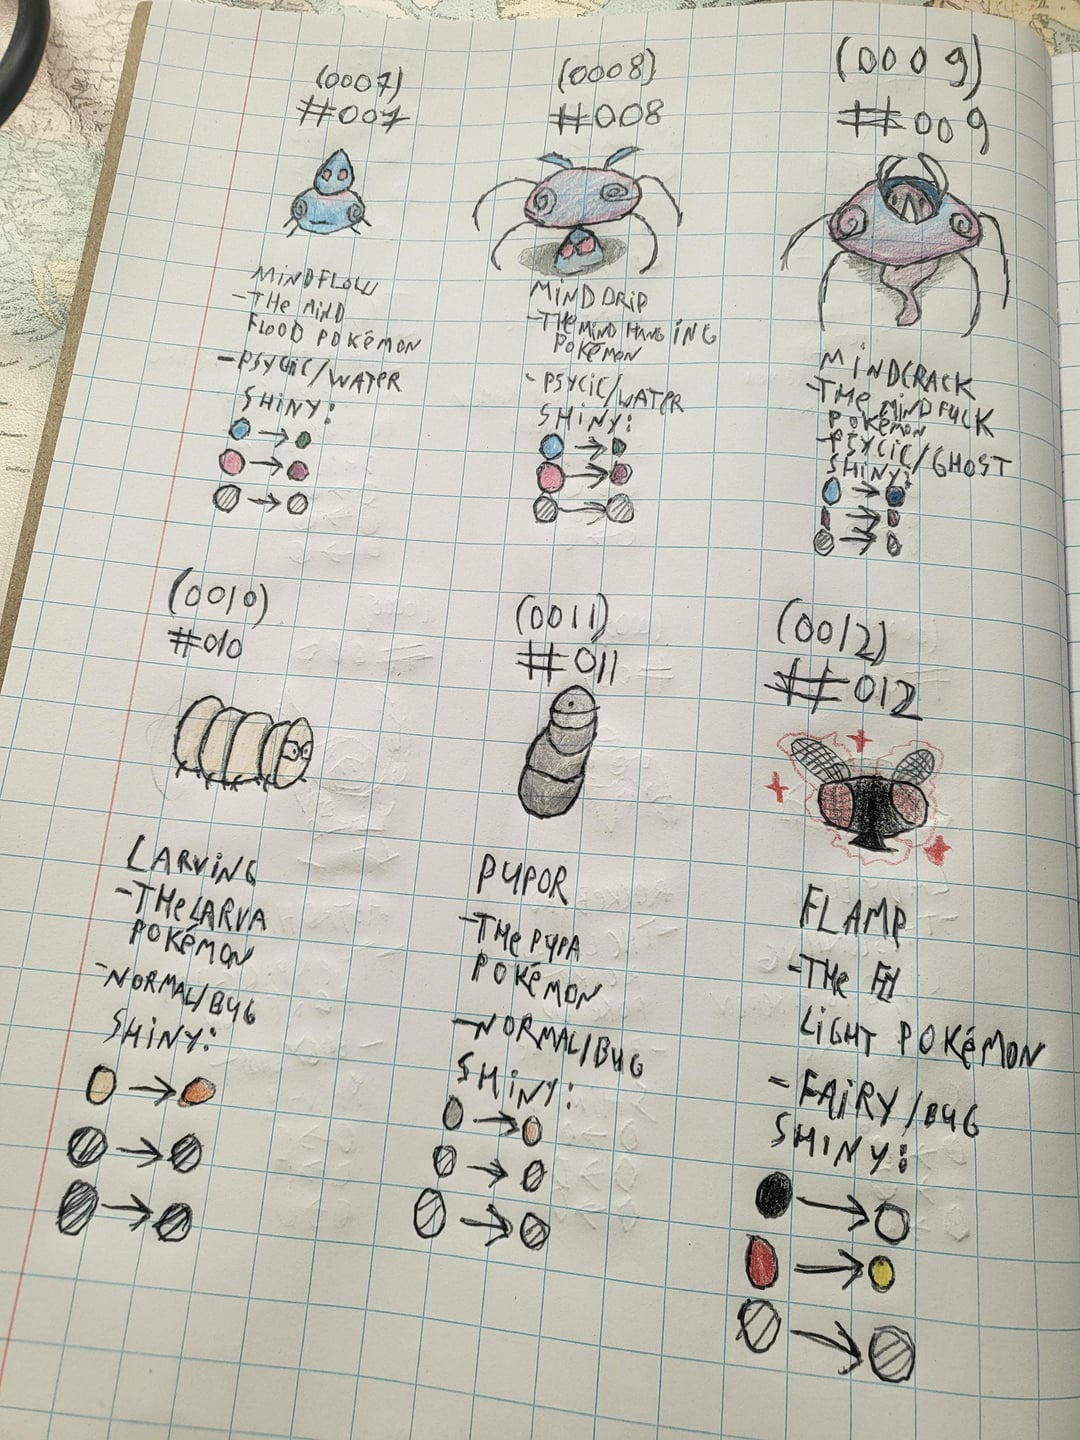 (0007)
#007
MINDFLOW
-THE MIND
FLOOD POKéMON
-PSYCIC/WATER
SHINY:
(0008)
#008
MINDDRIP
-THE MIND HANGING
POKéMON
-PSYCIC/WATER
SHINY:
(0009)
#009
MINDCRACK
-THE MINDFUCK
POKéMON
-PSYCIC/GHOST
SHINY:
(0010)
#010
LARVING
-THE LARVA
POKéMON
-NORMAL/BUG
SHINY:
(0011)
#011
PUPOR
-THE PUPA
POKéMON
-NORMAL/BUG
SHINY:
(0012)
#012
FLAMP
-THE
LIGHT POKéMON
-FAIRY/BUG
SHINY: